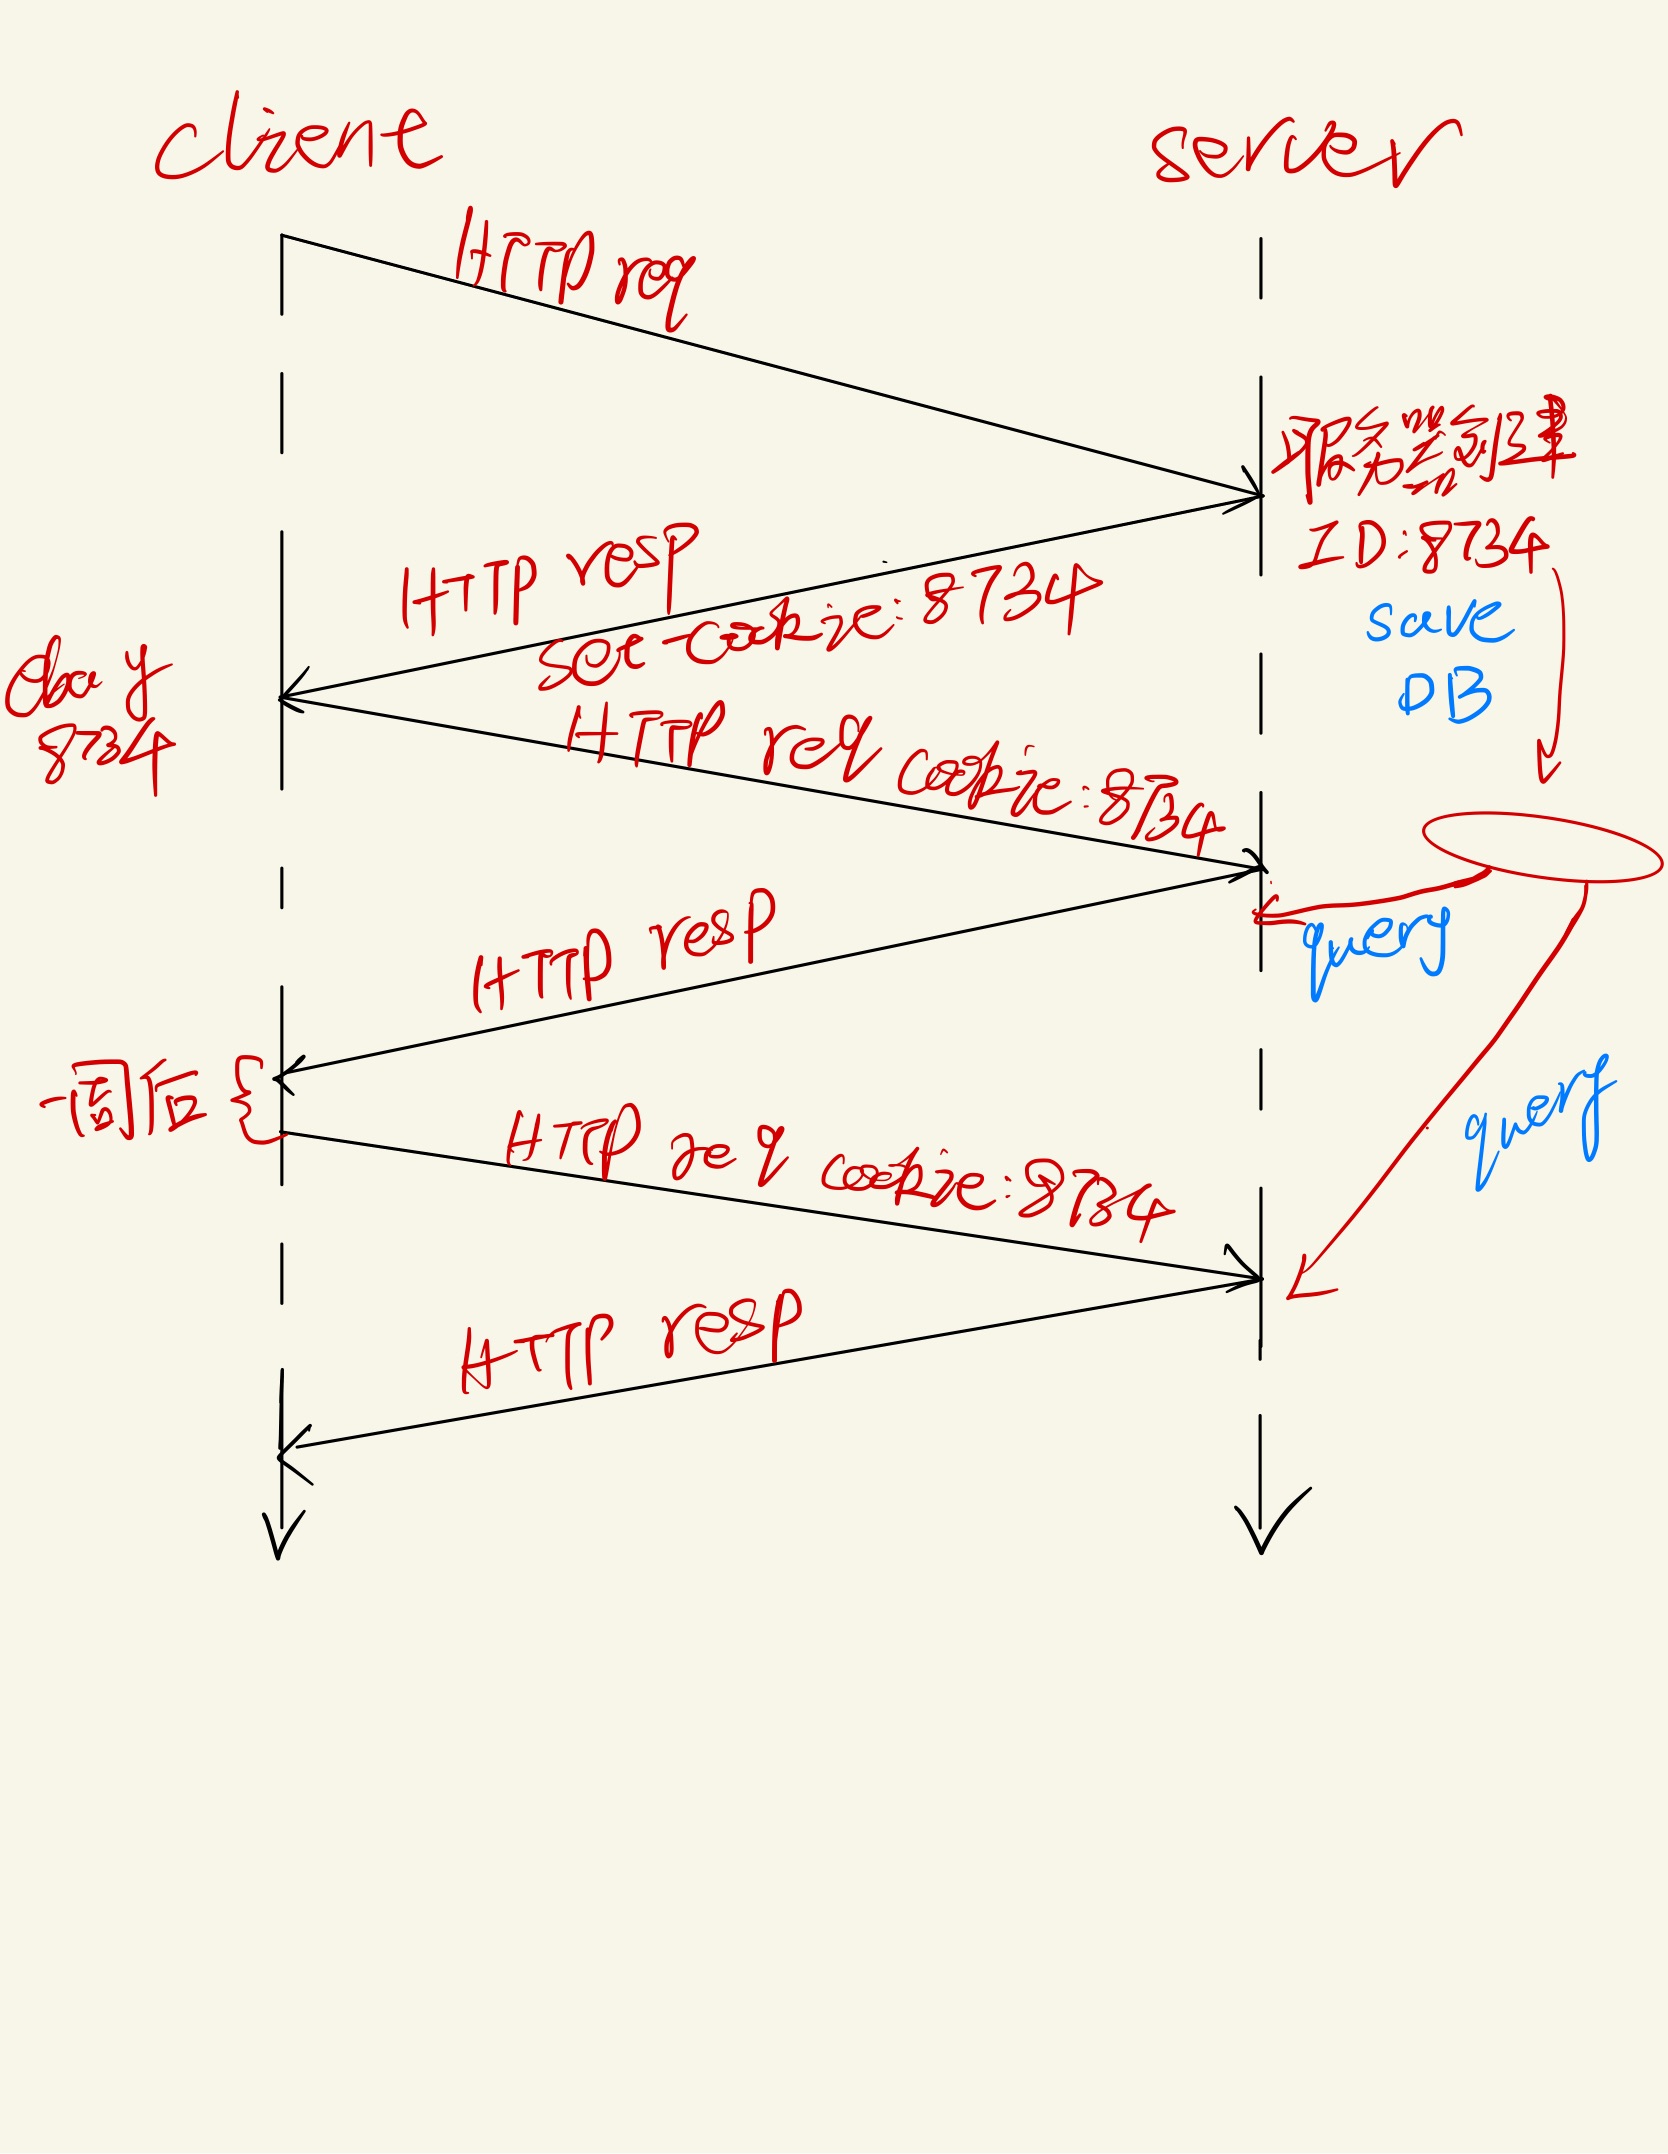 client
server
HTTP req
服务器创建
ID:8734
HTTP resp
set-cookie:8734
save
DB
ebay
8734
HTTP req cookie:8734
HTTP resp
query
一周后
HTTP req cookie:8734
query
HTTP resp